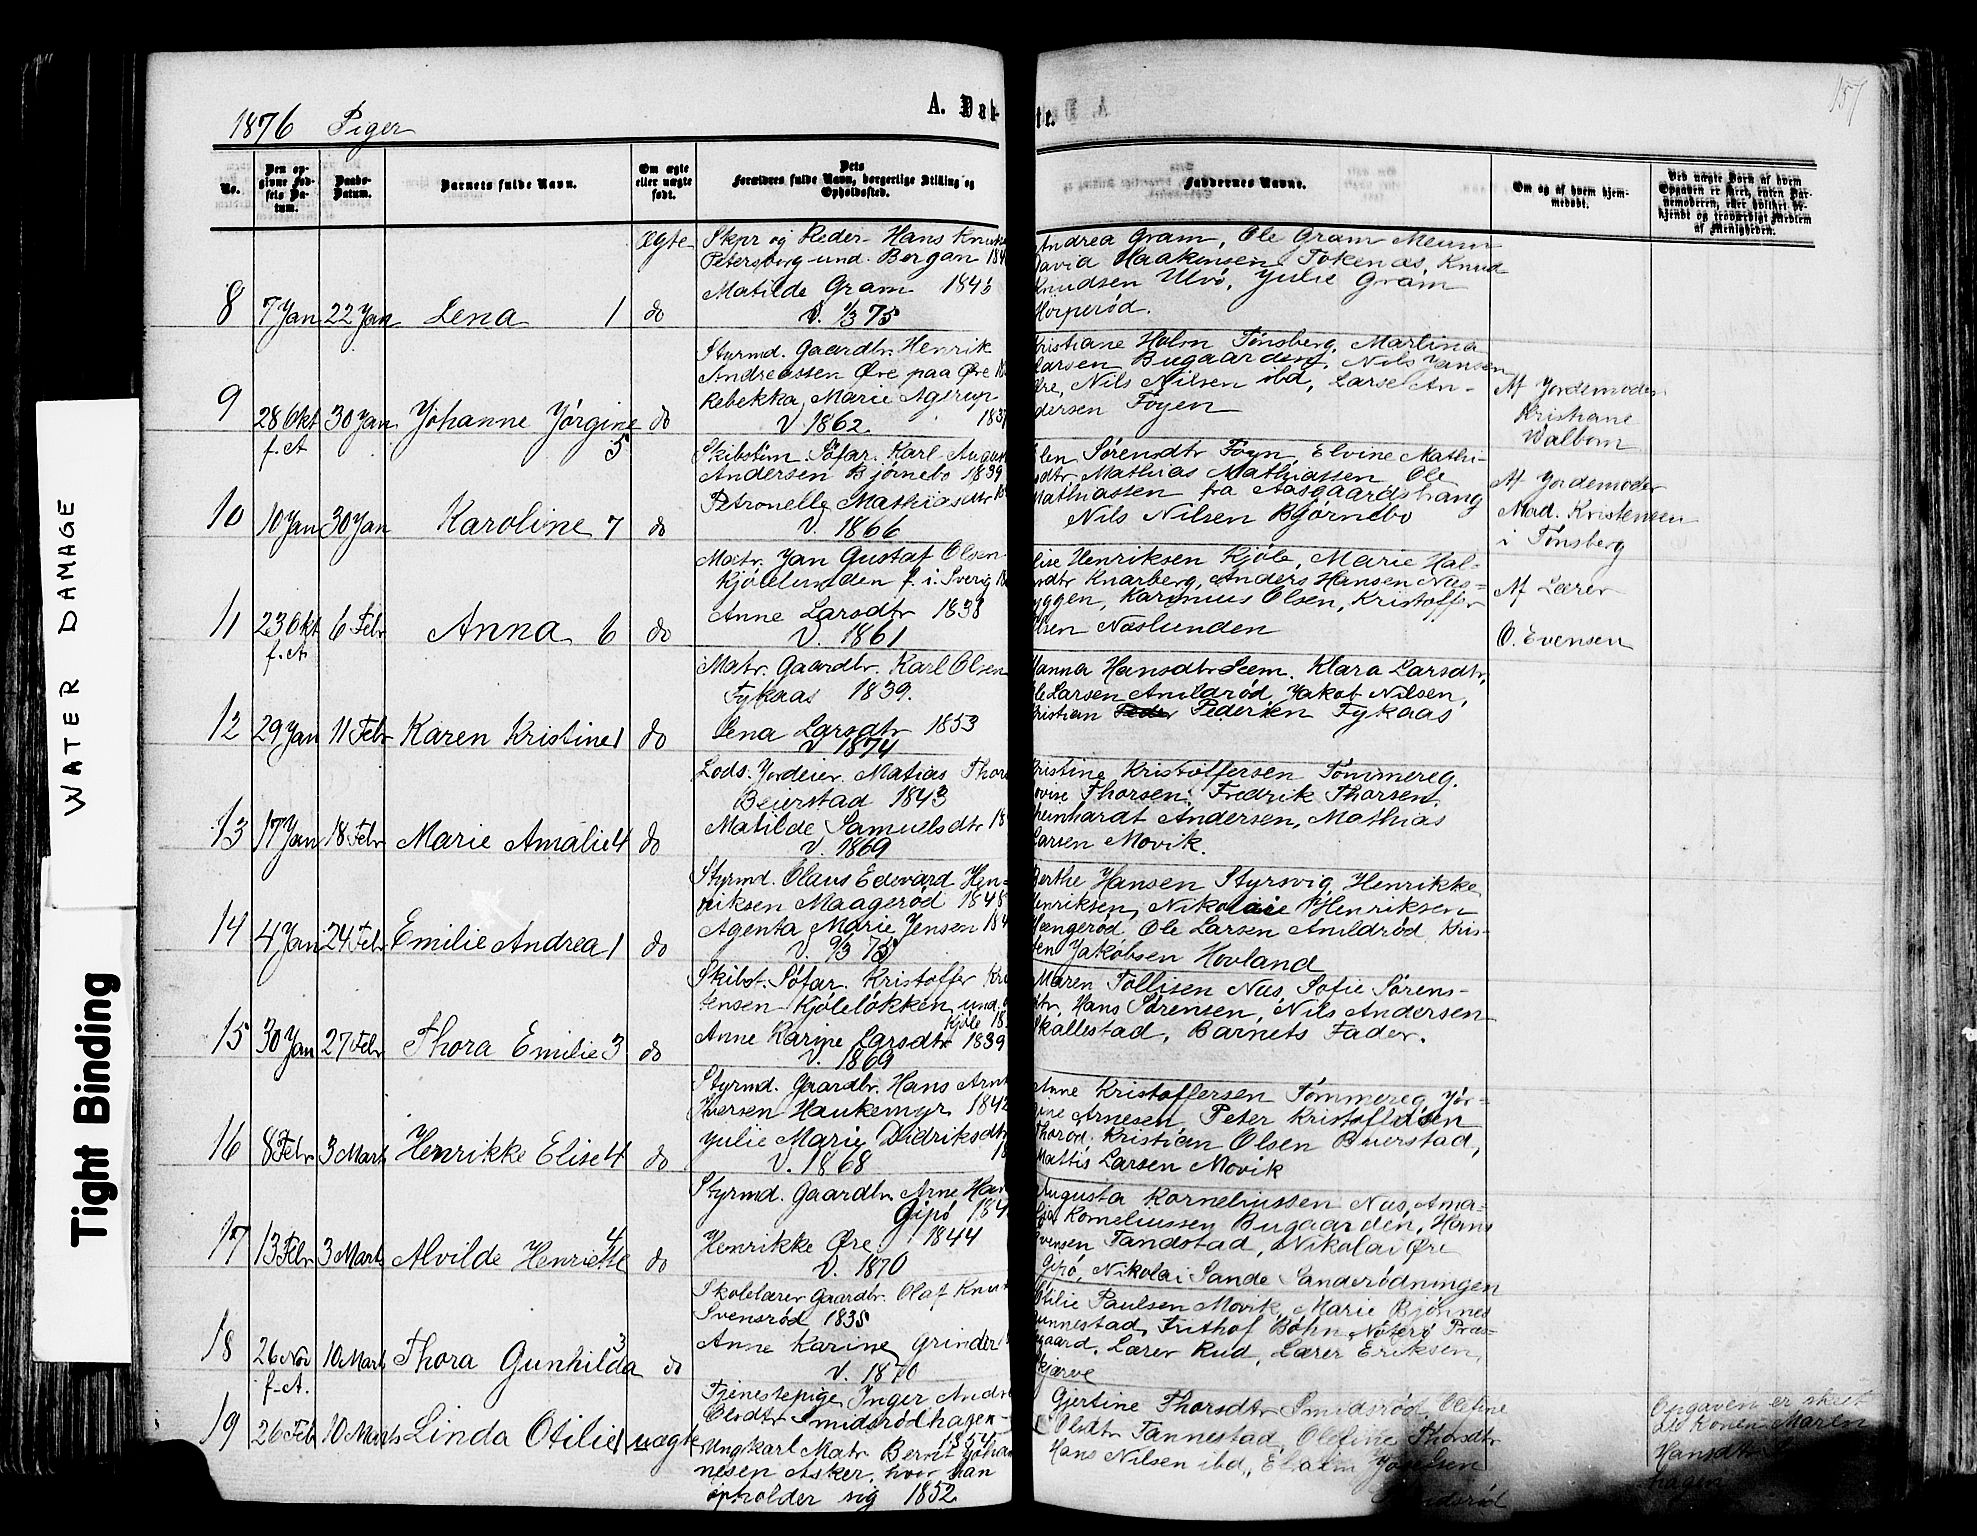 157
1876 Piger
A. Døb-
te.
No.
Den op-
givne Fød-
sels Da-
tum.
Daabs-
Datum.
Barnets fulde Navn.
Om ægte
eller uægte
født.
Dets
Forældres fulde Navn, borgerlige Stilling og
Opholdssted.
Faddernes Navne.
Om og af hvem hjem-
medøbt.
Ved uægte Børn af hvem
Opgaven er skeet, enten Bar-
nemoderen, eller hvilket be-
kjendt og troværdigt Medlem
af Menigheden.
8 7 Jan 22 Jan Lena 1
ægte
do
Skpr og Reder Hans
Petersborg und. Bergan
Matilde Gram 1846
V. 1/3 75
Andrea Gram, Ole Gram
David Haakensen, Knud
Knudsen Ulvö, Julie Gram
9 28 Okt f. A. 30 Jan Johanne Jörgine 5 do
Styrmd. Gaardbr. Henrik
Andreassen Öre paa Öre
Rebekka Marie Agerup
V 1862
Kristiane Holm Tönsberg, Martina
Larsen Bugaarden, Nils Jansen
Öre, Nils Nilsen ibd, Larse An-
dersen Föyen
Af Jordemoder
Kristiane
Walbom
10 10 Jan 30 Jan Karoline 7 do
Skibstöm. Söfar. Karl August
Andersen Björnebo 1839
Petronelle Mathiasdtr
V. 1866
Sörensdtr Föyn, Elvine Mathi-
sdtr, Mathias Mathiassen Ole
Mathiassen fra Aasgaardstrang
Nils Nilsen Björnebo
Af Jordemoder
Mad. Kristensen
i Tönsberg
11 23 Okt f. A. 6 Febr Anna 6 do
Matr. Jan Gustaf Olsen
Kjölelunden f. i. Sverig
Anne Larsdtr 1838
V. 1861
Henriksen Kjöle, Marie Hal-
Knarberg, Anders Hansen Næs-
byggen, Karinius Olsen, Kristoffer
Olsen Næslunden
Af Lærer
O. Evensen
12 29 Jan 11 Febr Karen Kristine 1 do
Matr. Gaardbr. Karl Olsen
Fykaas 1839.
Lena Larsdtr 1853
V 1874
Hanna Hansdtr Sem. Klara Larsdtr,
Ole Larsen Amildröd, Jakob Nilsen,
Kristian Pedersen Fykaas
13 17 Jan 18 Febr Marie Amalie 4 do
Lods. Jordeier Matias
Beierstad 1843
Matilde Samuelsdtr
V. 1869
Kristine Kristoffersen Tömmereg.
Thorsen, Fredrik Thorsen,
Andersen, Mathias
Larsen Movik.
14 4 Jan 24 Febr Emilie Andrea 1 do
Styrmd. Olaus Edevard Hen-
riksen Maageröd 1848
Agenta Marie Jensen
V. 9/3 75
Berthe Hansen Styrsvig, Henrikke
Henriksen, Nikolaie Henriksen
Ole Larsen Amildröd, Kris-
ten Jakobsen Hovland
15 30 Jan 27 Febr Thora Emilie 3 do
Skibst. Söfar. Kristoffer
tensen Kjölelökken und.
Kjöle
Anne Karine Larsdtr 1839
V. 1869
Maren Tollisen Næs, Sofie Sörens-
dtr, Hans Sörensen, Nils Andersen
Skallestad, Barnets Fader.
16 8 Febr 3 Marts Henrikke Elise 4 do
Styrmd. Gaardbr. Hans
Iversen Haukemyr 1842
Julie Marie Didriksdtr
V. 1868
Anne Kristoffersen Tömmereg, Jör-
gine Arnesen, Peter Kristoffersen
Kristian Olsen Buerstad,
Mattis Larsen Movik
17 13 Febr 3 Marts Alvilde Henriette 4 do
Styrmd. Gaardbr. Arne
Gipö
Henrikke Öre 1844
V. 1870
Augusta Korneliussen Næs, Ama-
lie Korneliussen Bugaarden, Hans
Svensen Tandstad, Nikolai Öre
Gipö, Nikolai Sande Sanderödningen
18 26 Nov f. A. 10 Marts Thora Gunhilda 3 do
Skolelærer Gaardbr. Olaf
Svensröd 1835
Anne Karine Grinder
V. 1870
Otilie Paulsen Movik, Marie
Frithof Böhn Nöterö Præs-
gaard, Lærer Rud, Lærer Eriksen,
19 26 Feb 10 Marts Linda Otilie 1 uægte
Tjenestepige Inger
Olsdtr Smidsrödhagen
1854
Ungkarl Matr. Bernt
nesen Asker, hvor han
opholder sig 1852
Gjertine Thorsdtr Smidsröd, Olefine
Olsdtr Tannestad, Olefine Thorsdtr
Hans Nilsen ibd,
Smidsröd
Opgaven er skeet
Konen Maren
Hansdtr
hagen
WATER DAMAGE
Tight Binding